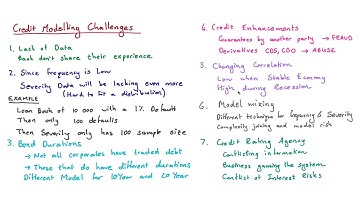 Credit Modelling Challenges
1. Lack of Data
Bank don't share their experience.
2. Since Frequency is Low
Severity Data will be lacking even more
(Hard to fit a distribution)
EXAMPLE
Loan Book of 10 000 with a 1% Default
Then only 100 defaults
Then Severity only has 100 sample size
3. Bond Durations
→ Not all corporates have traded debt
→ Those that do have different durations
Different Model for 10 Year and 20 Year
4. Credit Enhancements
Guarantees by another party → FRAUD
Derivatives CDS, CDO → ABUSE
5. Changing Correlation
Low when Stable Economy
High during Recession
6. Model mixing
Different technique for Frequency & Severity
Complexity joining and model risk
7. Credit Rating Agency
Conflicting information
Business gaming the system
Conflict of Interest Risks